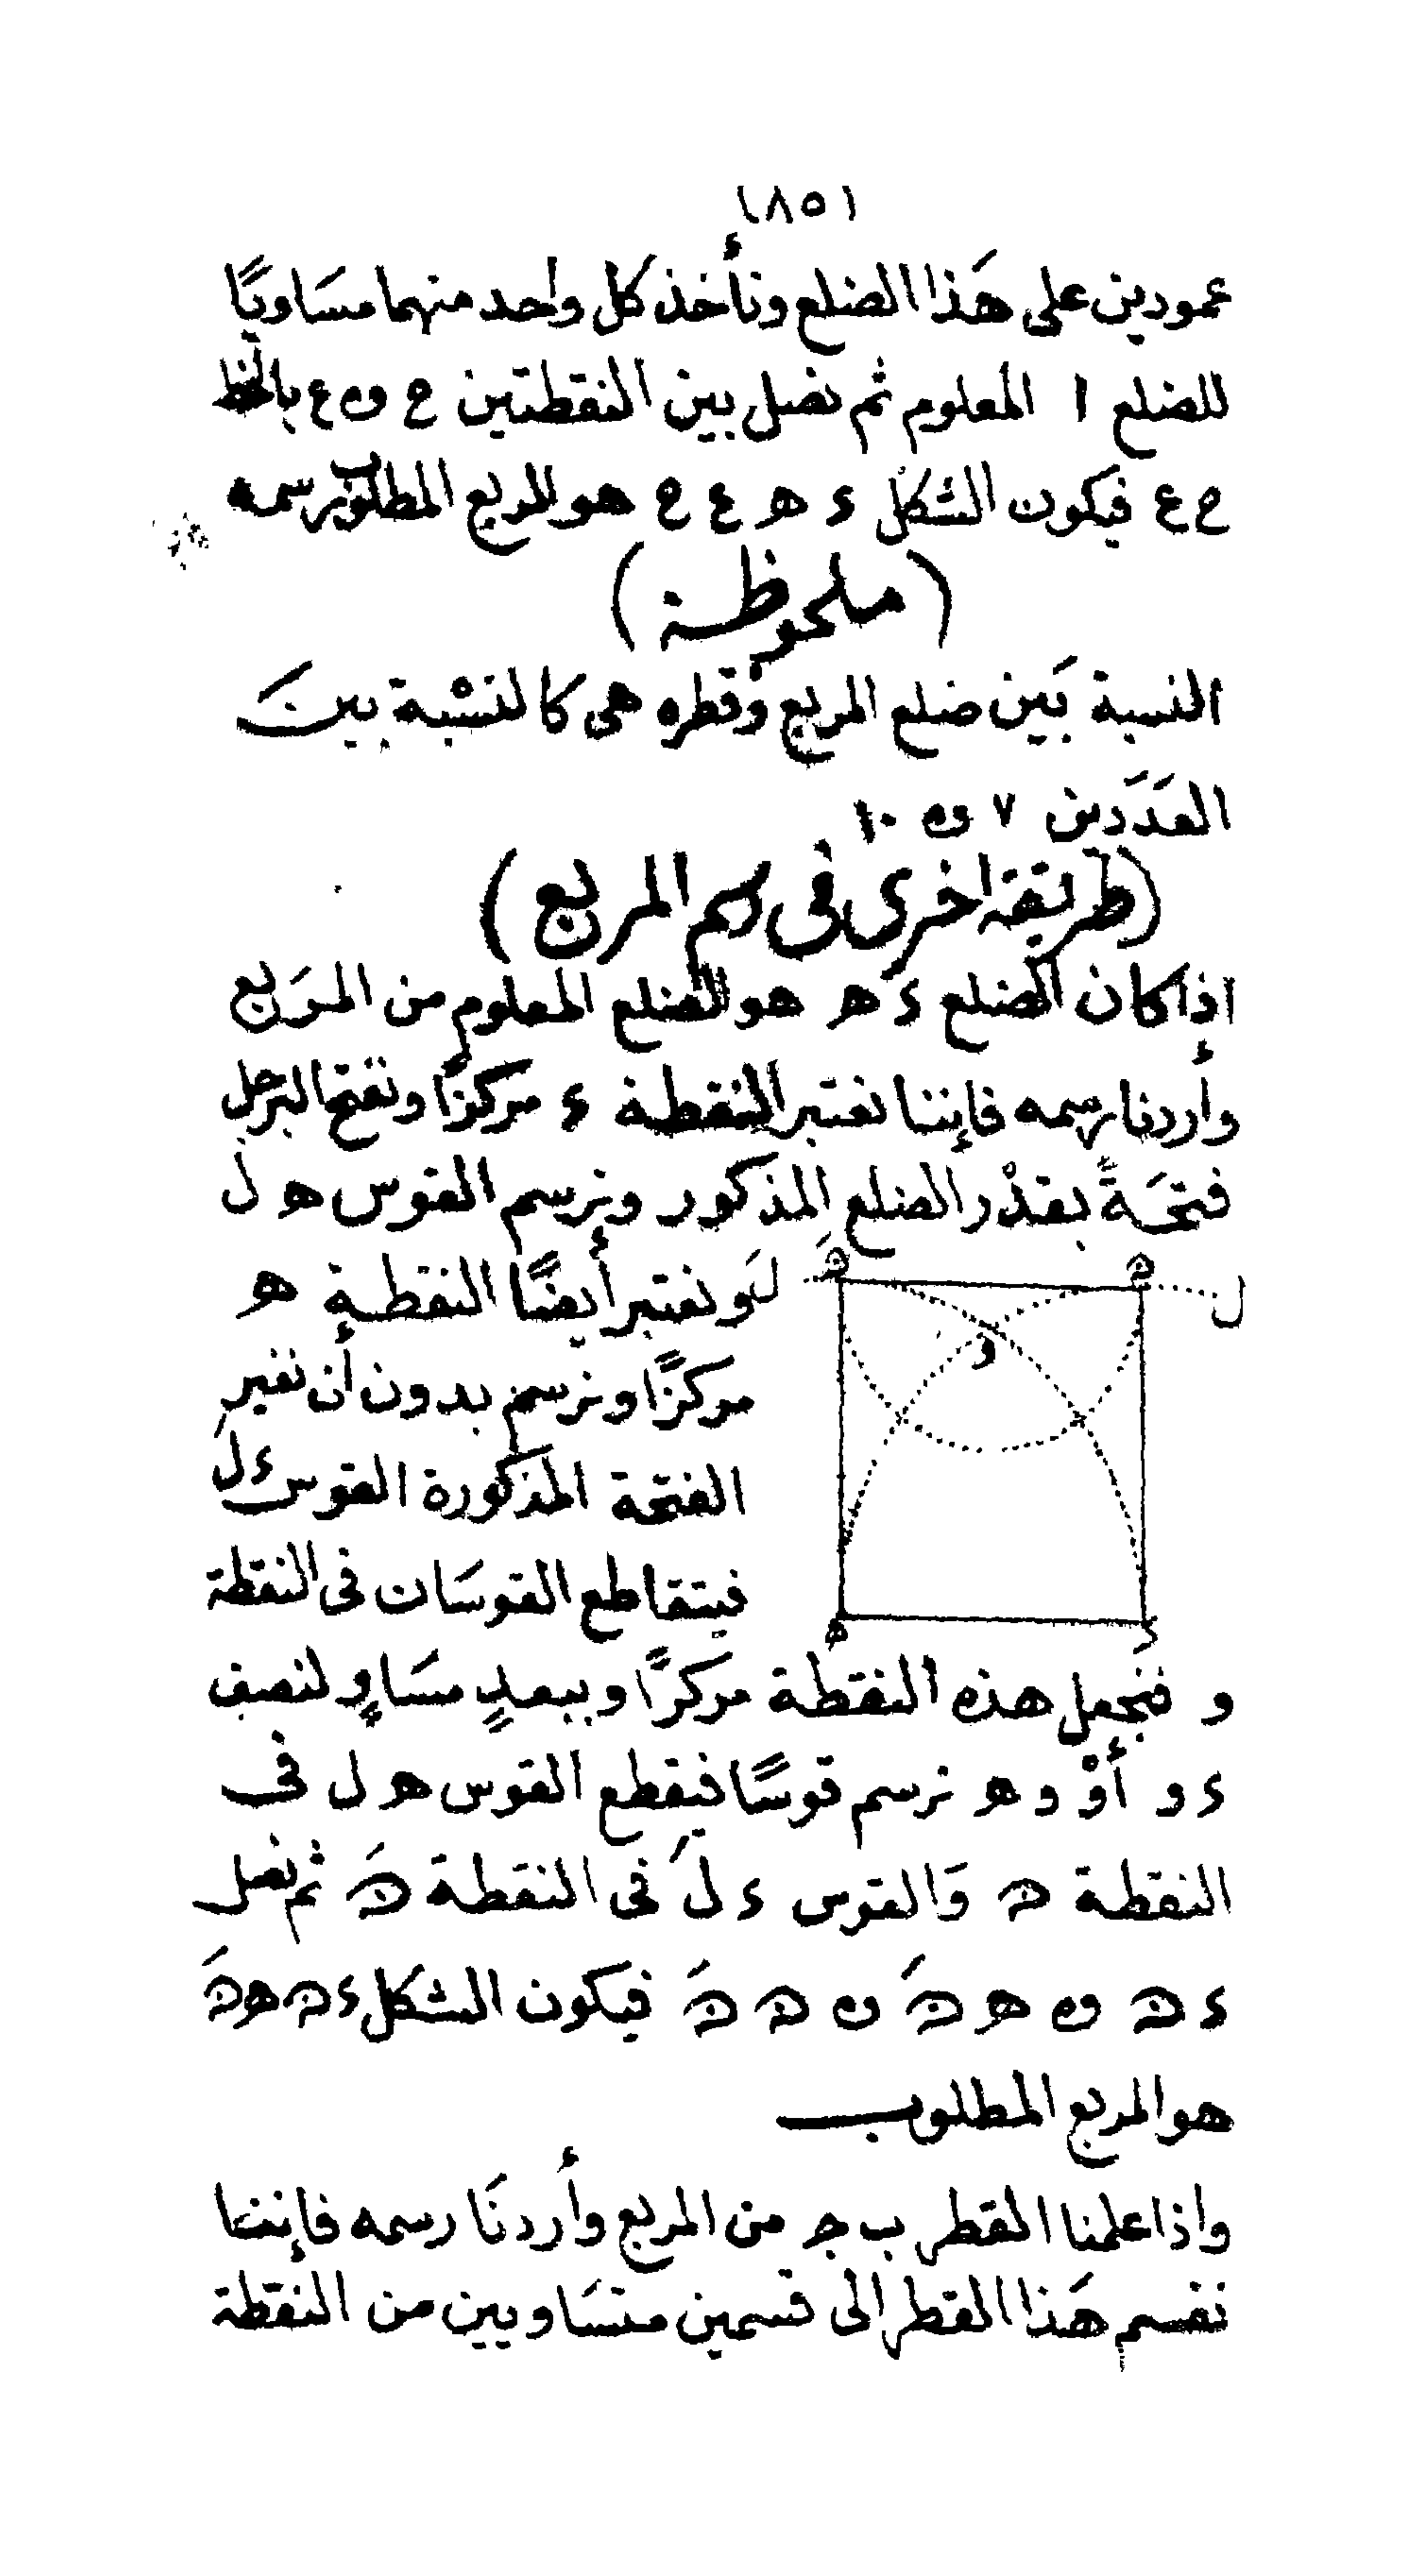 (٨٥)
عمودين على هَذا الضلع ونأخذ كل واحد منهما مسَاويًا
للضلع ا المعلوم ثم نصل بين النقطتين ح و ع بالخط
ح ع فيكون الشكل ء ه ع ح هو المربع المطلوب رسمه
(ملحوظة)
النسبة بَين ضلع المربع وقطره هى كالنسْبة بينَ
العَدَدَين ٧ و ١٠
(طريقة اخرى فى رسم المربع)
اذا كان الضلع ء ه هو الضلع المعلوم من المرَبع
وأردنا رسمه فإننا نعتبر النقطة ء مركزًا ونفتح البرجل
فتحَةً بقدْر الضلع المذكور ونرسم القوس ه ل
ونعتبر أيضًا النقطة ه
مركزًا ونرسم بدون أن نغير
الفتحة المذكورة القوس ء لَ
فيتقاطع القوسَان فى النقطة
و فنجعل هذه النقطة مركزًا وببعدٍ مسَاوٍ لنصف
ء و أوْ و ه نرسم قوسًا فيقطع القوس ه ل فى
النقطة ن وَالقوس ء لَ فى النقطة نَ ثم نصل
ء ن و ه نَ و ن نَ فيكون الشكل ء ن ه نَ
هو المربع المطلوب
واذا علمنا القطر ب ج من المربع وأردنَا رسمه فإننا
نقسم هَذا القطر الى قسمين متسَاويين من النقطة
لَ
ن
ن
ل
و
ه
ء